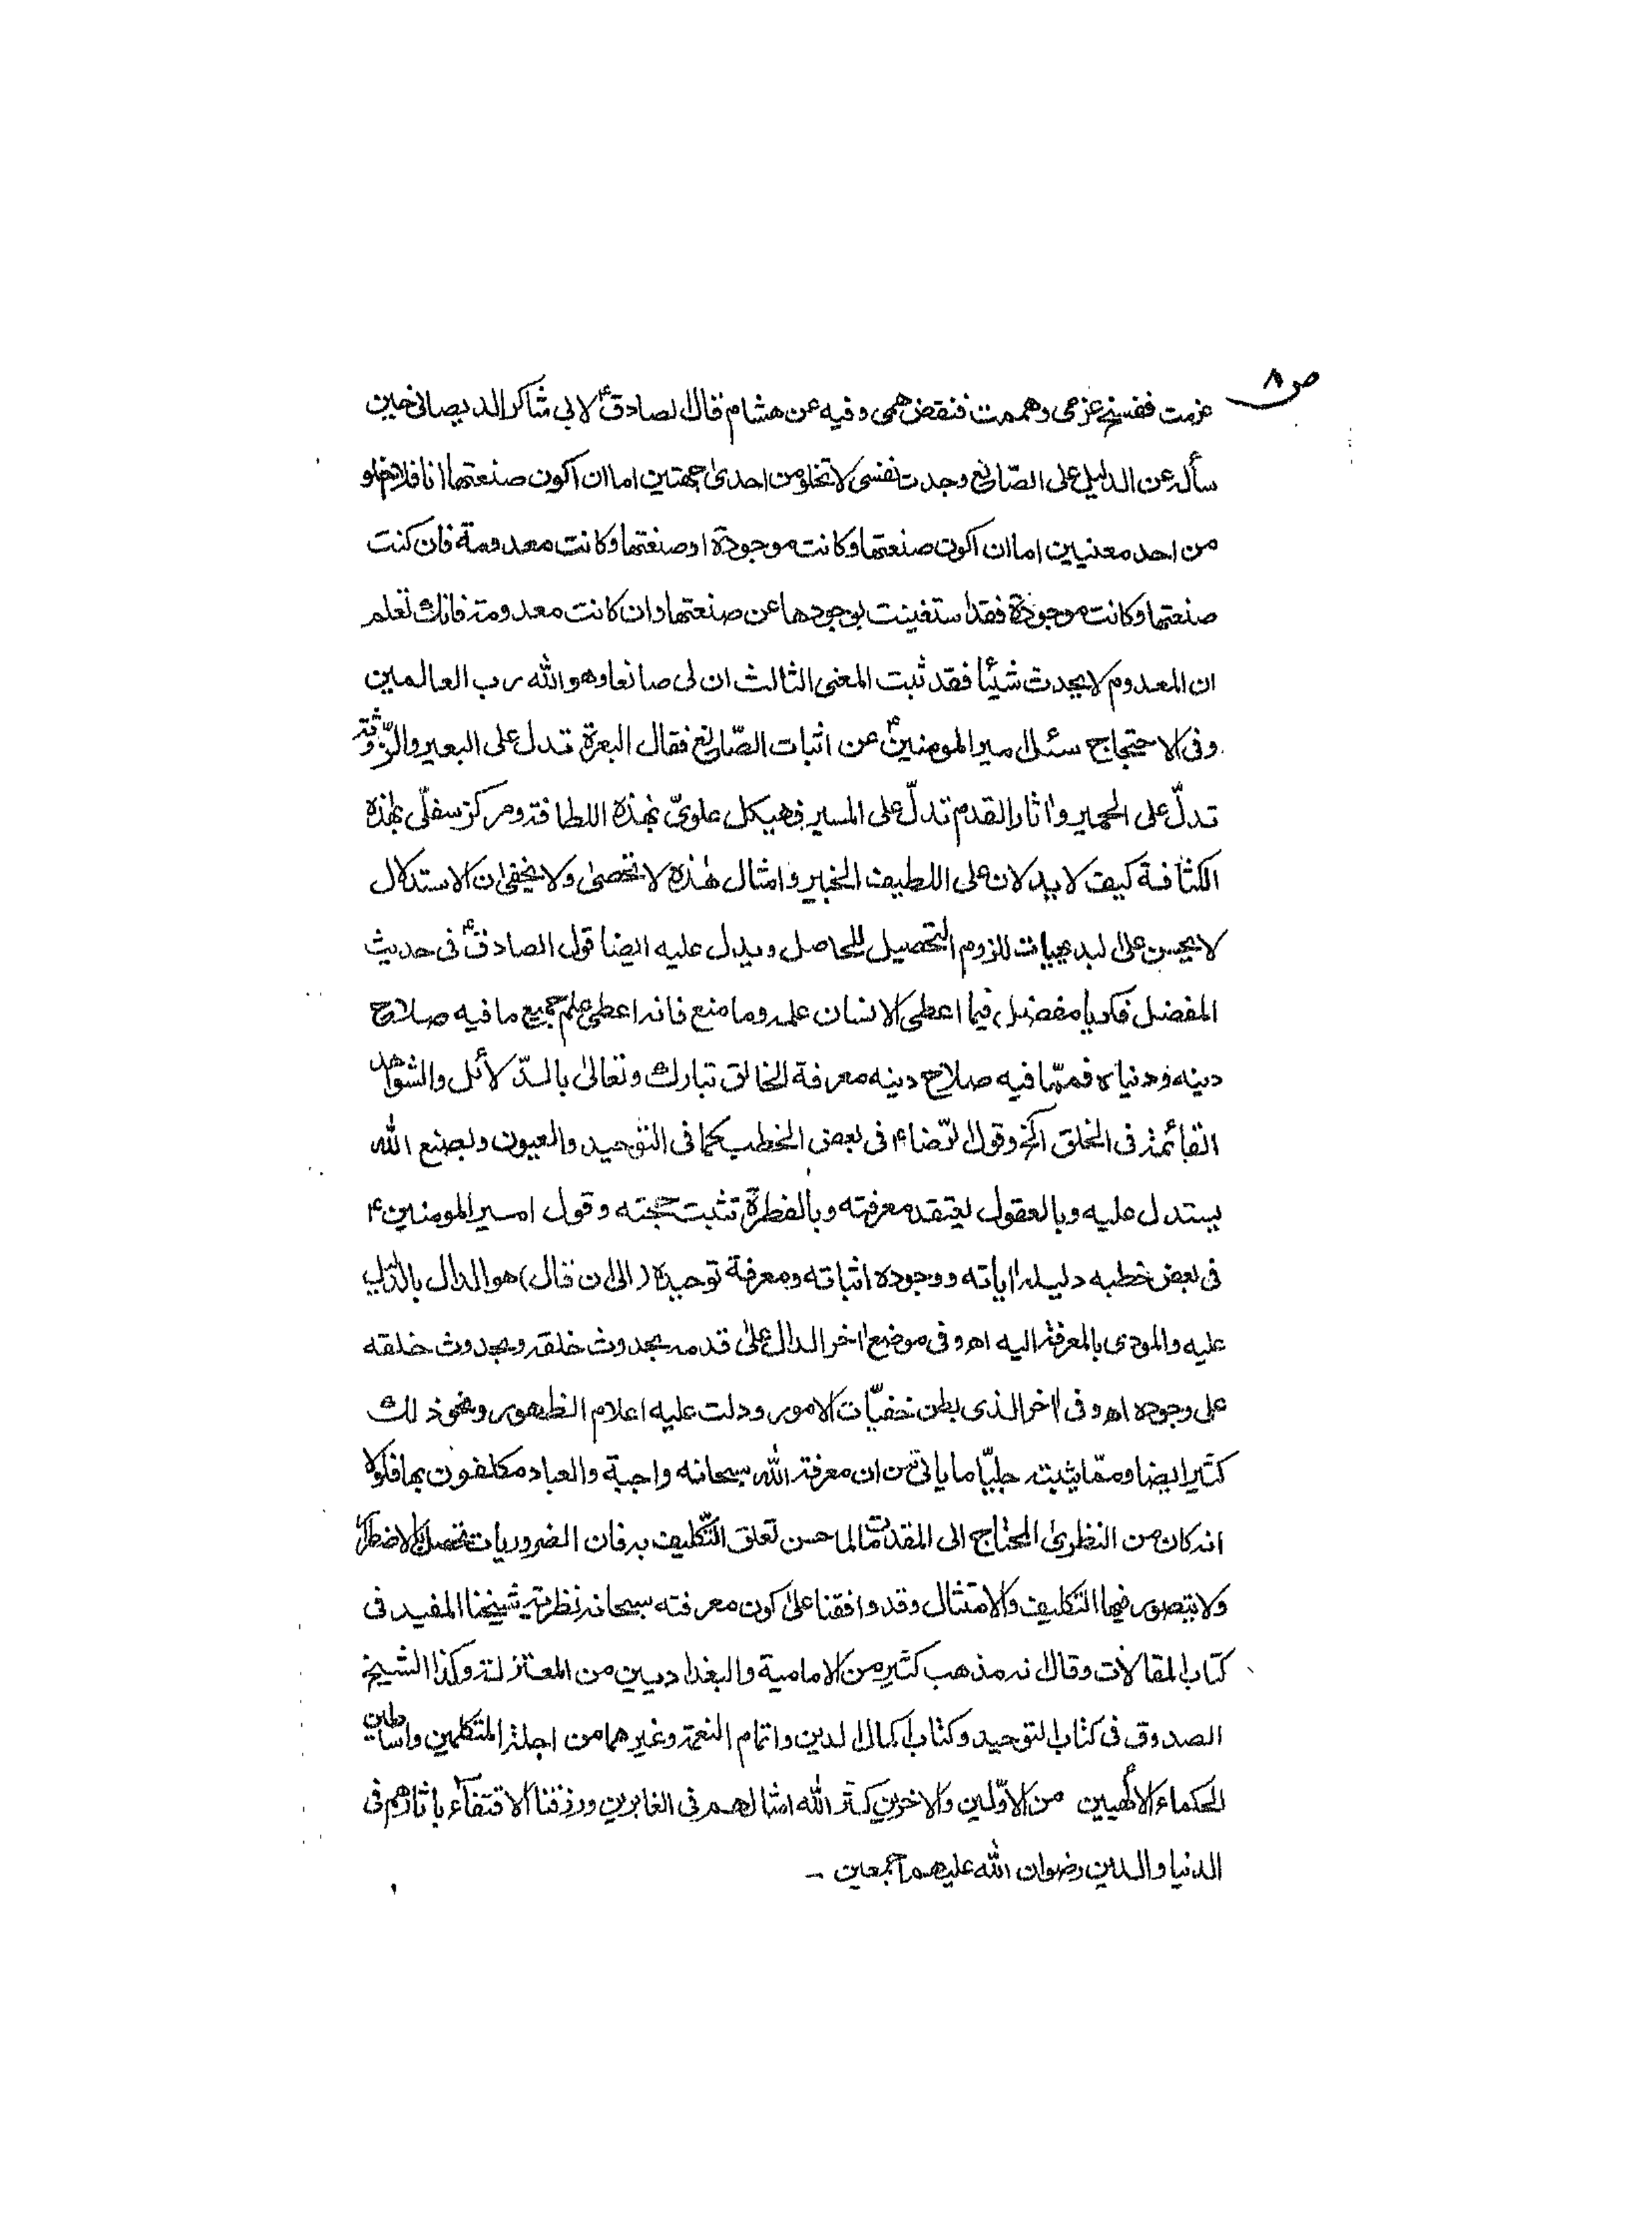 ص ٨
عزمت ففسخ عزمى وهممت فنقض همى وفيه عن هشام قال الصادقؑ لابى شاكر الديصانى حين
سأله عن الدليل على الصّانع وجدت نفسى لا تخلو من احدى جهتين اما ان اكون صنعتها انا فلا تخلو
من احد معنيين اما ان اكون صنعتها وكانت موجودة او صنعتها وكانت معدومة فان كنت
صنعتها وكانت موجودة فقد استغنيت بوجودها عن صنعتها وان كانت معدومة فانك تعلم
ان المعدوم لا يحدث شيئا فقد ثبت المعنى الثالث ان لى صانعا وهو الله رب العالمين
وفى الاحتجاج سئل امير المومنينؑ عن اثبات الصّانع فقال البعرة تدل على البعير والرّوثة
تدلّ على الحمير واثار القدم تدلّ على المسير فهيكل علوىّ بهذه اللطافة ومركز سفلّى بهذه
الكثافة كيف لا يدلان على اللطيف الخبير وامثال هذه لا تحصى ولا يخفى ان الاستدلال
لا يحسن على البديهيات للزوم التحصيل للحاصل ويدل عليه ايضا قول الصادقؑ فى حديث
المفضل فكر يا مفضل فيما اعطى الانسان علمه وما منع فانه اعطى علم جميع ما فيه صلاح
دينه ودنياه فممّا فيه صلاح دينه معرفة الخالق تبارك وتعالى بالدّلائل والشواهد
القائمة فى الخلق الخ وقول الرّضاء؏ فى بعض الخطب كما فى التوحيد والعيون وبصنع الله
يستدل عليه وبالعقول يعتقد معرفته وبالفطرة تثبت حجته وقول امير المومنين؏
فى بعض خطبه دليله اياته ووجوده اثباته ومعرفة توحيده (الى ان قال) هو الدال بالدليل
عليه والمودى بالمعرفة اليه اه وفى موضع اخر الدال على قدمه بحدوث خلقه وبحدوث خلقه
على وجوده اه وفى اخر الذى بطن خفيّات الامور ودلت عليه اعلام الظهور ونحو ذلك
كثير ايضا وممّا يثبته جليّا ما ياتى من ان معرفة الله سبحانه واجبة والعباد مكلفون بها فلولا
انه كان من النظرى المحتاج الى المقدمات لما حسن تعلق التّكليف به فان الضروريات تحصل بالاضطرار
ولا يتصور فيها التكليف والامتثال وقد وافقنا على كون معرفته سبحانه نظرية شيخنا المفيد فى
كتاب المقالات وقال انه مذهب كثير من الامامية والبغداديين من المعتزلة وكذا الشيخ
الصدوق فى كتاب التوحيد وكتاب اكمال الدين واتمام النعمة وغيرهما من اجلة المتكلمين واساطين
الحكماء الالهيين من الاوّلين والاخرين كثر الله امثالهم فى الغابرين ورزقنا الاقتفاء باثارهم فى
الدنيا والدين رضوان الله عليهم اجمعين -